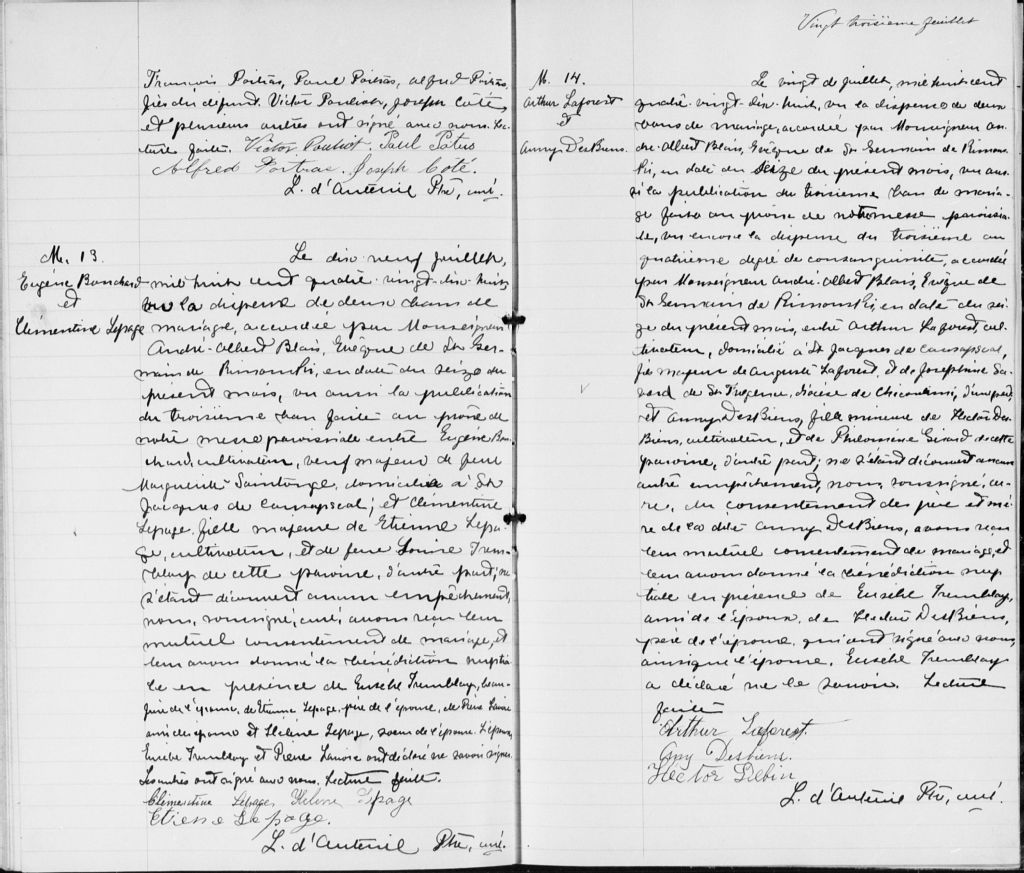 Vingt troisième feuillet
François Poitras, Paul Poitras, Alfred Poitras,
fils du défunt. Victor Pouliot, Joseph Côté,
et plusieurs autres ont signé avec nous. Lec-
ture faite. Victor Pouliot, Paul Potras
Alfred Poitras. Joseph Coté.
L. d'Auteuil Ptre, curé.
M. 13.
Eugène Bouchard
et
Clémentine Lepage
Le dix neuf juillet,
mil huit cent quatre-vingt-dix-huit,
vu la dispense de deux bans de
mariage, accordée par Monseigneur
André-Albert Blais, Evêque de St Ger-
main de Rimouski, en date du seize du
présent mois, vu aussi la publication
du troisième ban faite au prône de
notre messe paroissiale entre Eugène Bou-
chard, cultivateur, veuf majeur de feue
Marguerite Saintonge, domicilié à St
Jacques de Causapscal; et Clémentine
Lepage, fille majeure de Etienne Lepa-
ge, cultivateur, et de feue Louise Trem-
blay de cette paroisse, d'autre part; ne
s'étant découvert aucun empêchement,
nous, soussigné, curé, avons reçu leur
mutuel consentement de mariage, et
leur avons donné la bénédiction nuptia-
le en présence de Eusèbe Tremblay, beau-
frère de l'époux, de Etienne Lepage, père de l'épouse, de Pierre
ami des époux et Hélène Lepage, soeur de l'épouse. L'époux,
Eusèbe Tremblay et Pierre ont déclaré ne savoir signer.
Les autres ont signé avec nous. Lecture faite.
Clémentine Lepage, Helene Lepage
Etienne Lepage.
L. d'Auteuil Ptre, curé.
M. 14.
Arthur Laforest
et
Anny DesBiens.
Le vingt de juillet, mil huit cent
quatre-vingt-dix-huit, vu la dispense de deux
bans de mariage, accordée par Monseigneur An-
dré-Albert Blais, Evêque de St Germain de Rimous-
ki, en date du seize du présent mois, vu aus-
si la publication du troisième ban de maria-
ge faite au prône de notre messe paroissia-
le, vu encore la dispense du troisième au
quatrième degré de consanguinité, accordée
par Monseigneur André-Albert Blais, Evêque de
St Germain de Rimouski, en date du sei-
ze du présent mois, entre Arthur Laforest, cul-
tivateur, domicilié à St Jacques de Causapscal,
fils majeur de Auguste Laforest, et de Josephine Sa-
vard de St Fulgence, diocèse de Chicoutimi, d'une part,
et Anny DesBiens, fille mineure de Hector Des
Biens, cultivateur, et de Philomène Girard de cette
paroisse, d'autre part; ne s'étant découvert aucun
autre empêchement, nous, soussigné, cu-
ré, du consentement des père et mè-
re de la dite Anny DesBiens, avons reçu
leur mutuel consentement de mariage, et
leur avons donné la bénédiction nup-
tiale en présence de Eusèbe Tremblay,
ami de l'époux, de Hector DesBiens,
père de l'épouse, qui ont signé avec nous,
ainsi que l'épouse. Eusèbe Tremblay
a déclaré ne le savoir. Lecture
faite
Arthur Laforest.
Any Desbiens.
Hector Debin
L. d'Auteuil Ptre, curé.